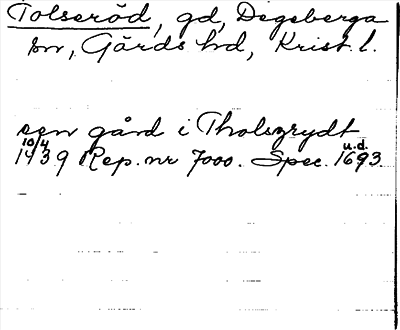 Tolseröd, gd, Degeberga
sn, Gärds hd, Krist. l.
een gård i Tholszrydt
10/4 u.d.
1439 Rep. nr 7000. Spec. 1693